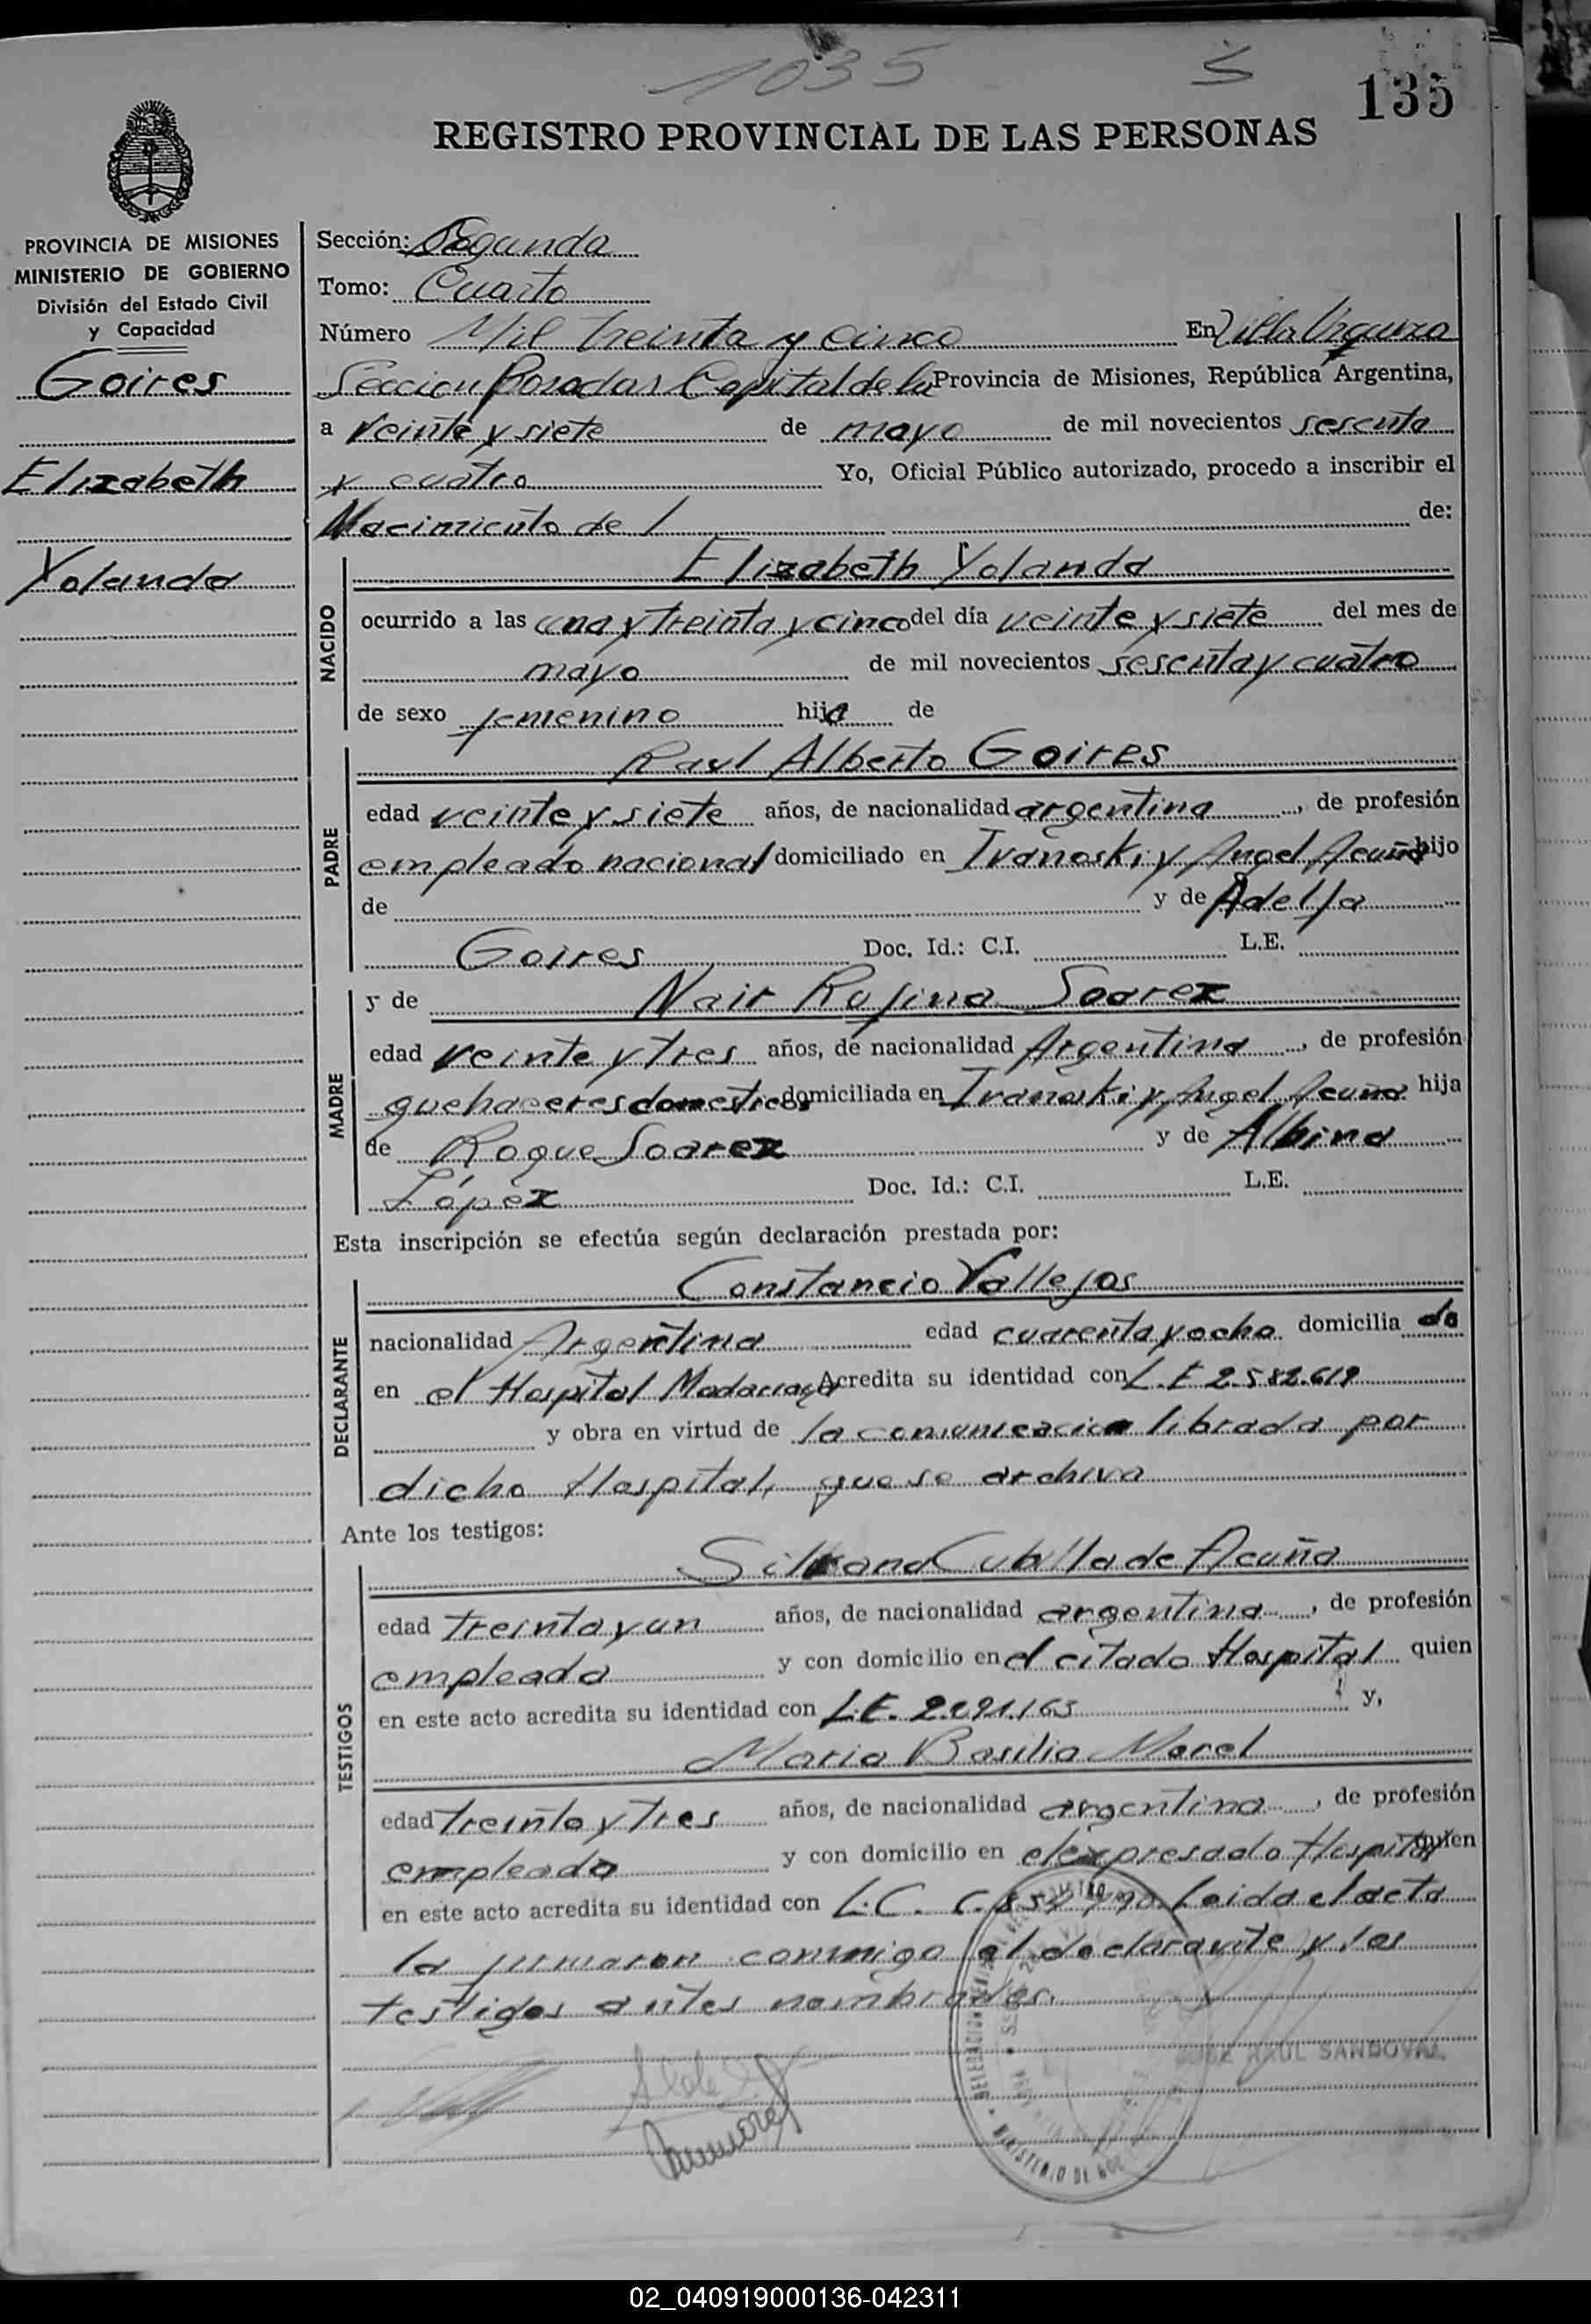 1035
S
135
REGISTRO PROVINCIAL DE LAS PERSONAS
PROVINCIA DE MISIONES
MINISTERIO DE GOBIERNO
División del Estado Civil
y Capacidad
Goires
Elizabeth
Yolanda
Sección: Segunda
Tomo: Cuarto
Número Mil treinta y cinco En Villa Urquiza
Seccion Posadas Capital de la Provincia de Misiones, República Argentina,
a veinte y siete de mayo de mil novecientos sesenta
y cuatro Yo, Oficial Público autorizado, procedo a inscribir el
Nacimiento de / de:
NACIDO
Elizabeth Yolanda
ocurrido a las una y treinta y cinco del día veinte y siete del mes de
mayo de mil novecientos sesenta y cuatro
de sexo femenino hija de
PADRE
Raul Alberto Goires
edad veinte y siete años, de nacionalidad argentina, de profesión
empleado nacional domiciliado en Ivanoski y Angel Acuña hijo
de y de Adelfa
Goires Doc. Id.: C.I. L.E.
MADRE
y de Nair Rufina Soarez
edad veinte y tres años, de nacionalidad Argentina, de profesión
quehaceres domesticos domiciliada en Ivanoski y Angel Acuña hija
de Roque Soarez y de Albina
López Doc. Id.: C.I. L.E.
Esta inscripción se efectúa según declaración prestada por:
DECLARANTE
Constancio Vallejos
nacionalidad Argentina edad cuarenta y ocho domicilia do
en el Hospital Madariaga Acredita su identidad con L.E 2.582.619
y obra en virtud de la comunicacion librada por
dicho Hospital, que se archiva
Ante los testigos:
TESTIGOS
Silvana Cubilla de Acuña
edad treinta y un años, de nacionalidad argentina, de profesión
empleada y con domicilio en el citado Hospital quien
en este acto acredita su identidad con L.E. y,
Maria Basilia Morel
edad treinta y tres años, de nacionalidad argentina, de profesión
empleada y con domicilio en el expresado Hospital quien
en este acto acredita su identidad con L.C. Leida el acta
la firmaron conmigo el declarante y los
testigos antes nombrados.
RAUL SANDOVAL
MINISTERIO DE
02_040919000136-042311